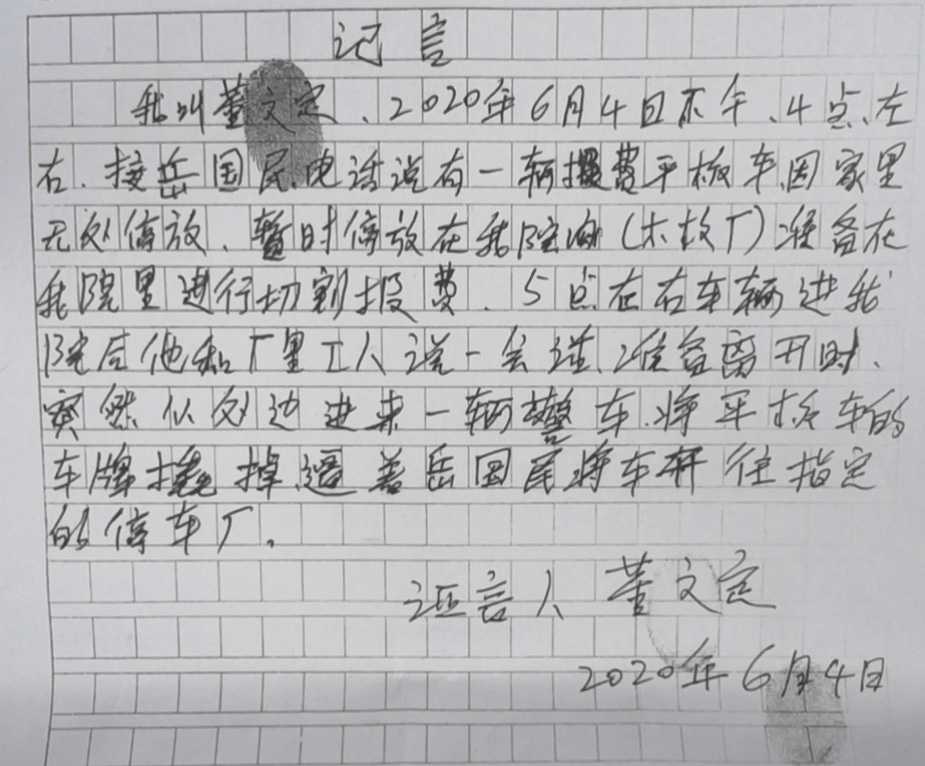 记言
我叫董文定、2020年6月4日下午、4点左
右、接岳国民电话说有一辆报费平板车因家里
无处停放、暂时停放在我院内(木材厂)准备在
我院里进行切割报费、5点左右车辆进我
院后他和厂里工人说一会话、准备离开时、
突然从外边进来一辆警车、将平板车的
车牌撬掉、逼着岳国民将车开往指定
的停车厂。
证言人 董文定
2020年6月4日